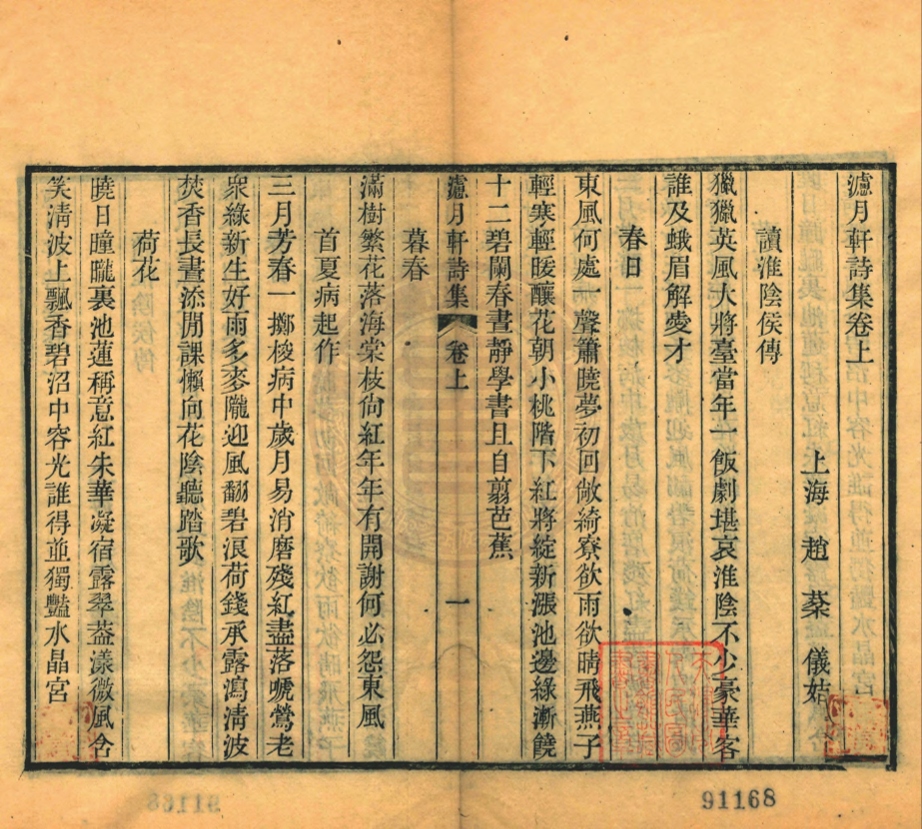 濾月軒詩集卷上
上海 趙棻 儀姞
讀淮陰侯傳
獵獵英風大將臺當年一飯劇堪哀淮陰不少豪華客
誰及蛾眉解愛才
春日
東風何處一聲簫曉夢初回敞綺寮欲雨欲晴飛燕子
輕寒輕暖釀花朝小桃階下紅將綻新漲池邊綠漸饒
十二碧闌春晝靜學書且自翦芭蕉
濾月軒詩集 卷上 一
暮春
滿樹繁花落海棠枝尙紅年年有開謝何必怨東風
首夏病起作
三月芳春一擲梭病中歲月易消磨殘紅盡落嗁鶯老
衆綠新生好雨多麥隴迎風翻碧浪荷錢承露瀉淸波
焚香長晝添閒課懶向花陰聽踏歌
荷花
曉日曈曨裏池蓮稱意紅朱華凝宿露翠葢漾微風含
笑淸波上飄香碧沼中容光誰得並獨豔水晶宮
91168